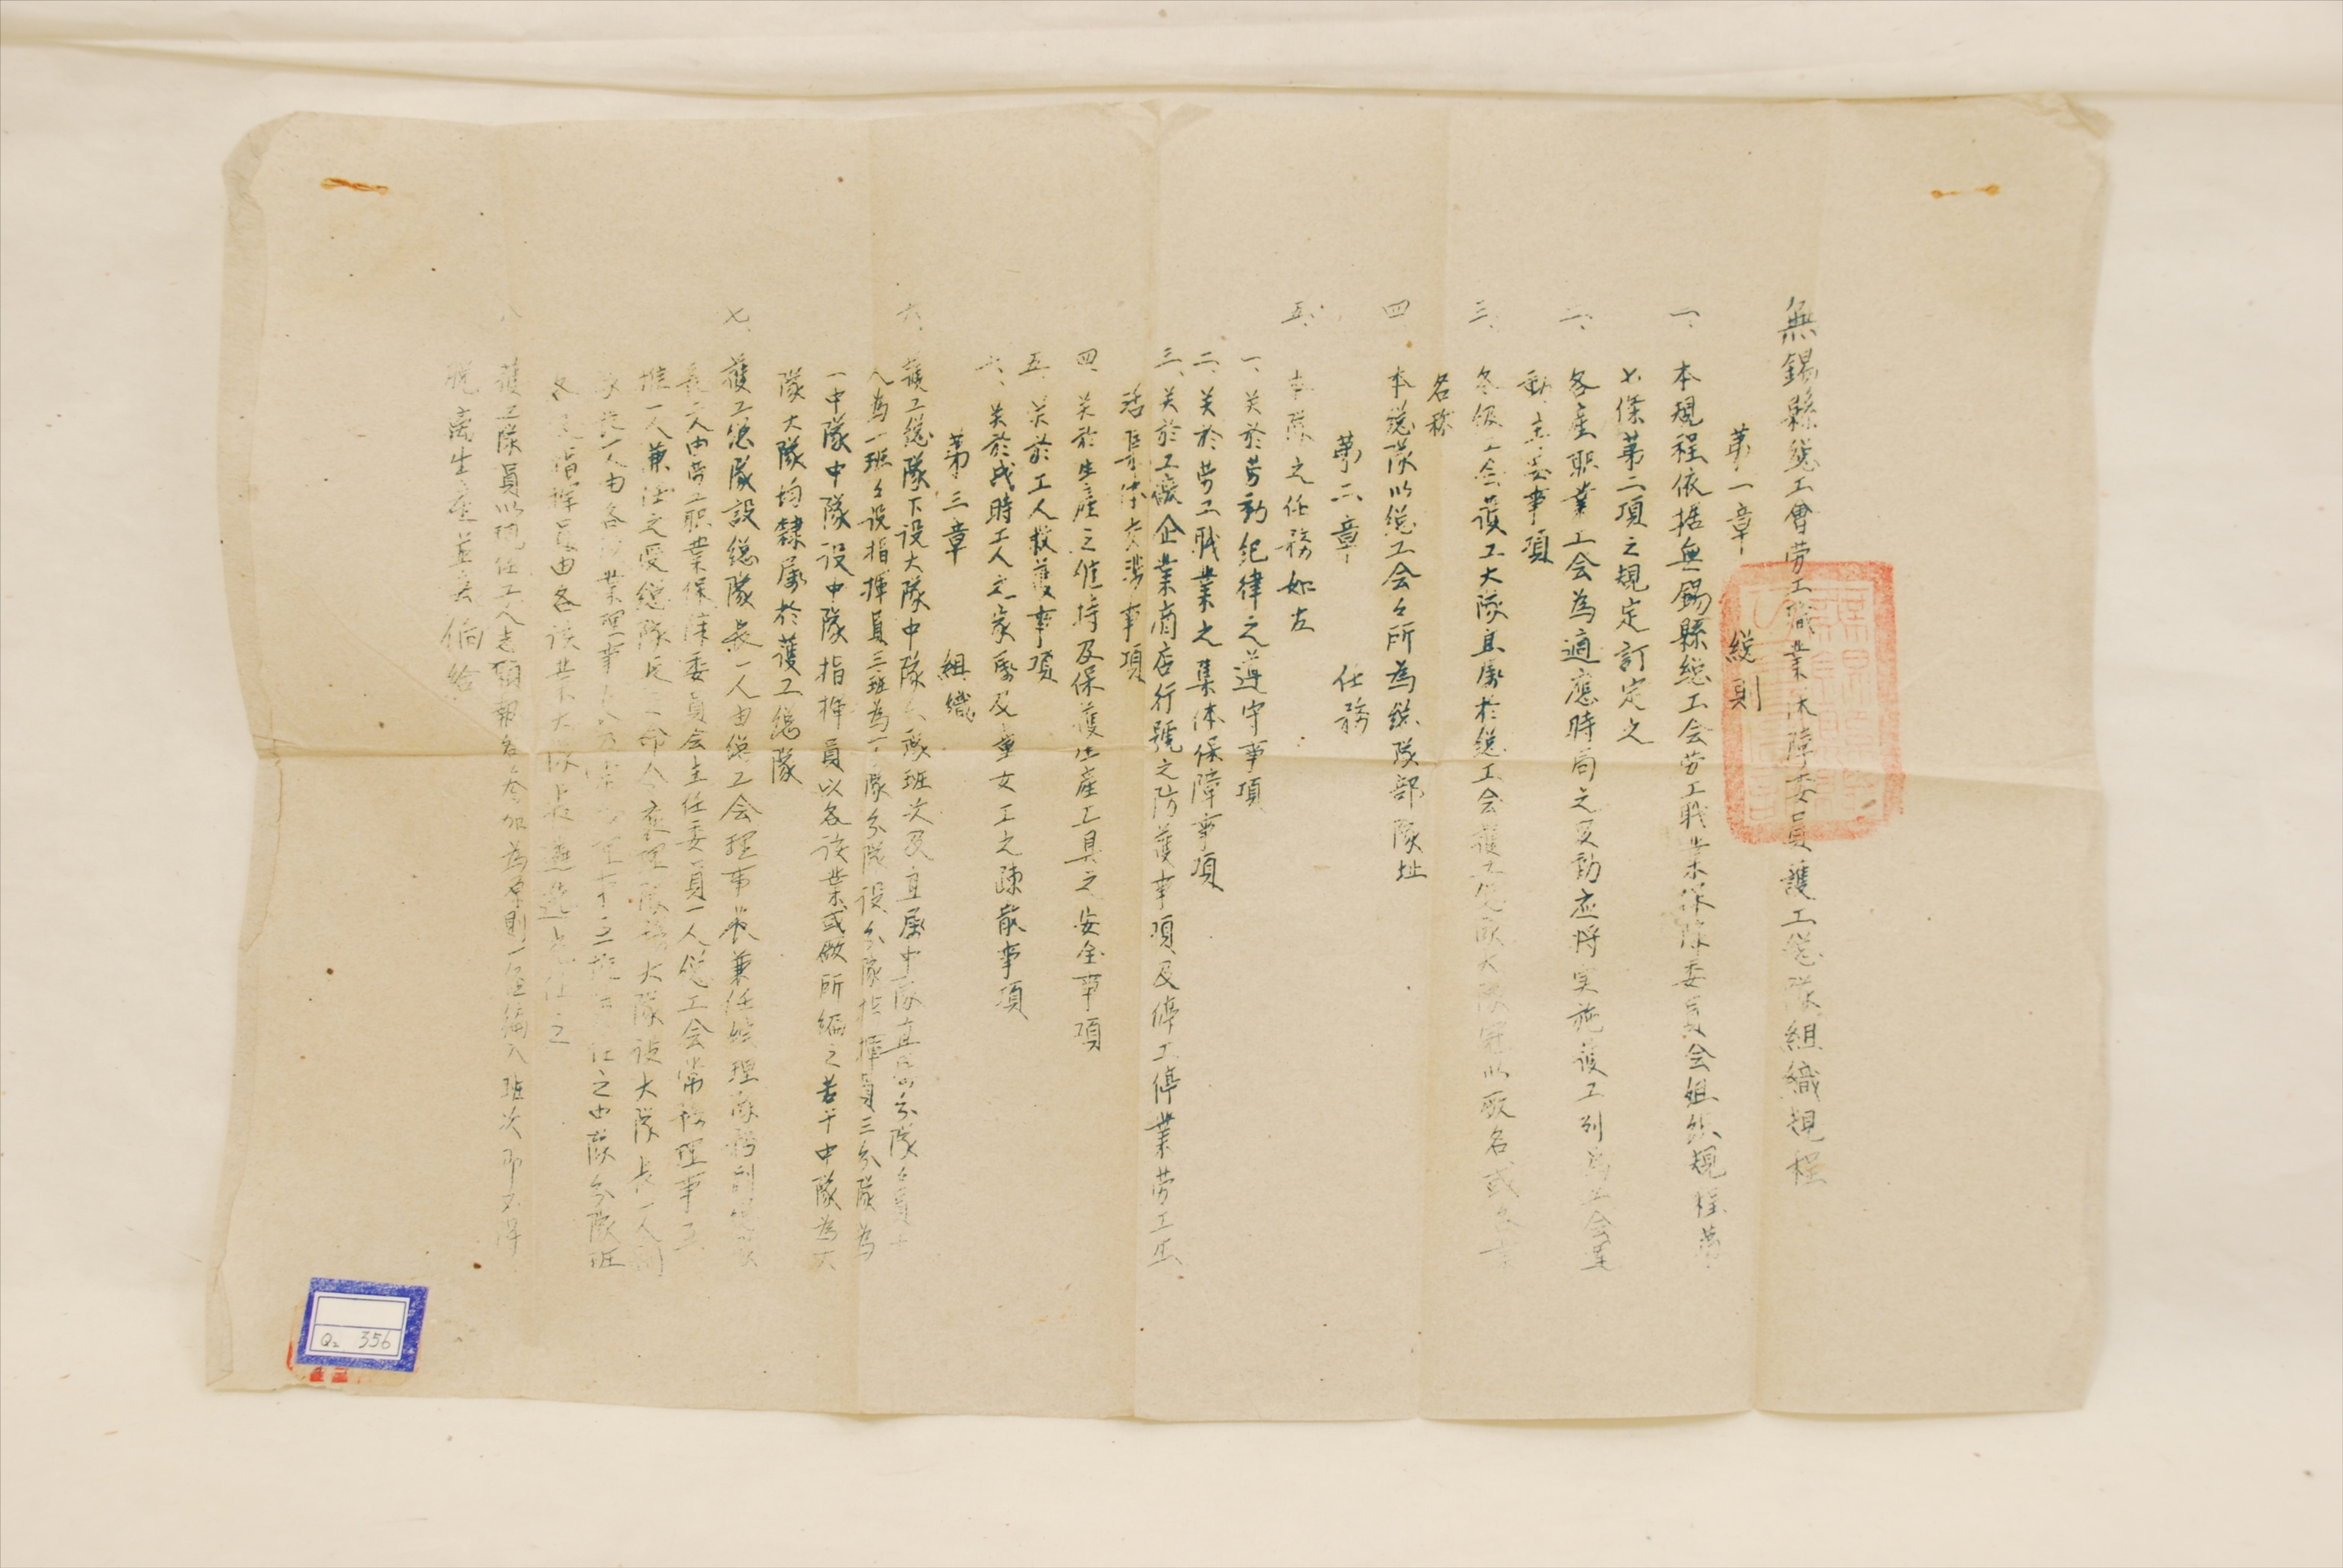 無錫縣總工會劳工職業保障委員護工總隊組織規程
第一章 總則
一、本規程依据無錫縣總工会劳工職業保障委員会組織規程第
七條第二項之規定訂定之
二、各產职業工会為適應時局之变動应将实施護工列為工会運
動主要事項
三、各級工会護工大隊直屬於總工会護工總隊大隊冠以厰名或
名称
四、本總隊以總工会々所為總隊部隊址
第二章 任務
五、本隊之任務如左:
一、关於劳動紀律之遵守事項
二、关於劳工職業之集体保障事項
三、关於工廠企業商店行號之防護事項及停工停業劳工生
活集体交涉事項
四、关於生產之維持及保護生產工具之安全事項
五、关於工人救護事項
六、关於战時工人之家屬及童女工之疎散事項
第三章 組織
六、護工總隊下设大隊中隊分隊班次及直屬中隊直屬分隊々員十
人為一班々设指揮員三班為一分隊分隊设分隊指揮員三分隊為
一中隊中隊设中隊指揮員以各该業或厰所編之若干中隊為大
隊大隊均隸屬於護工總隊
七、護工總隊設總隊長一人由總工会理事長兼任綜理隊務副總隊
長二人由劳工职業保障委員会主任委員一人總工会常務理事互
推一人兼任之受總隊長之命令處理隊務大隊设大隊長一人副
隊長一人由各 業理事 任之中隊分隊班
各设指揮員由各该業大隊長遴選充任之
八、護工隊員以現任工人志願報名参加為原則一經編入班次即不得
脱离生產並無餉給
Q2 356